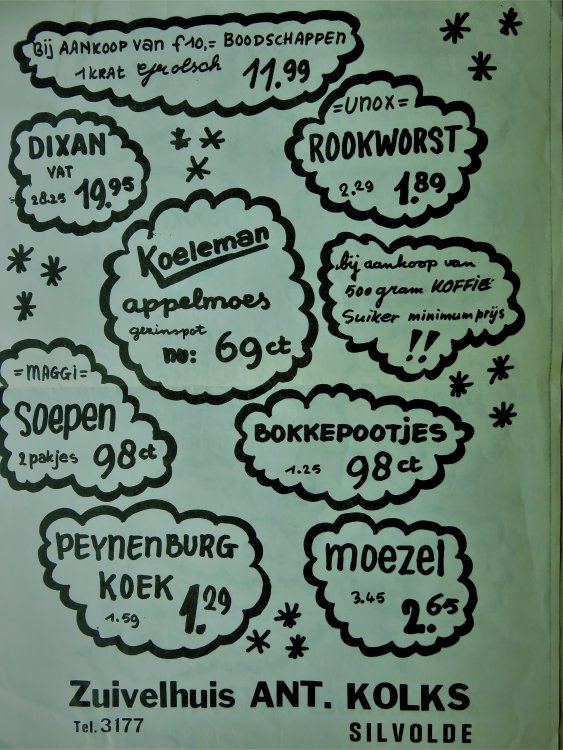 Bij AANKOOP van f10,= BOODSCHAPPEN
1 KRAT Grolsch 11.99
=UNOX=
ROOKWORST
2.29 1.89
DIXAN
VAT
28.25 19.95
Koeleman
appelmoes
gezinspot
nu: 69ct
bij aankoop van
500 gram KOFFIE
Suiker minimumprijs
!!
=MAGGI=
Soepen
2 pakjes 98ct
BOKKEPOOTJES
1.25 98ct
PEYNENBURG
KOEK 1.29
1.59
moezel
3.45
2.65
Zuivelhuis ANT. KOLKS
Tel. 3177
SILVOLDE